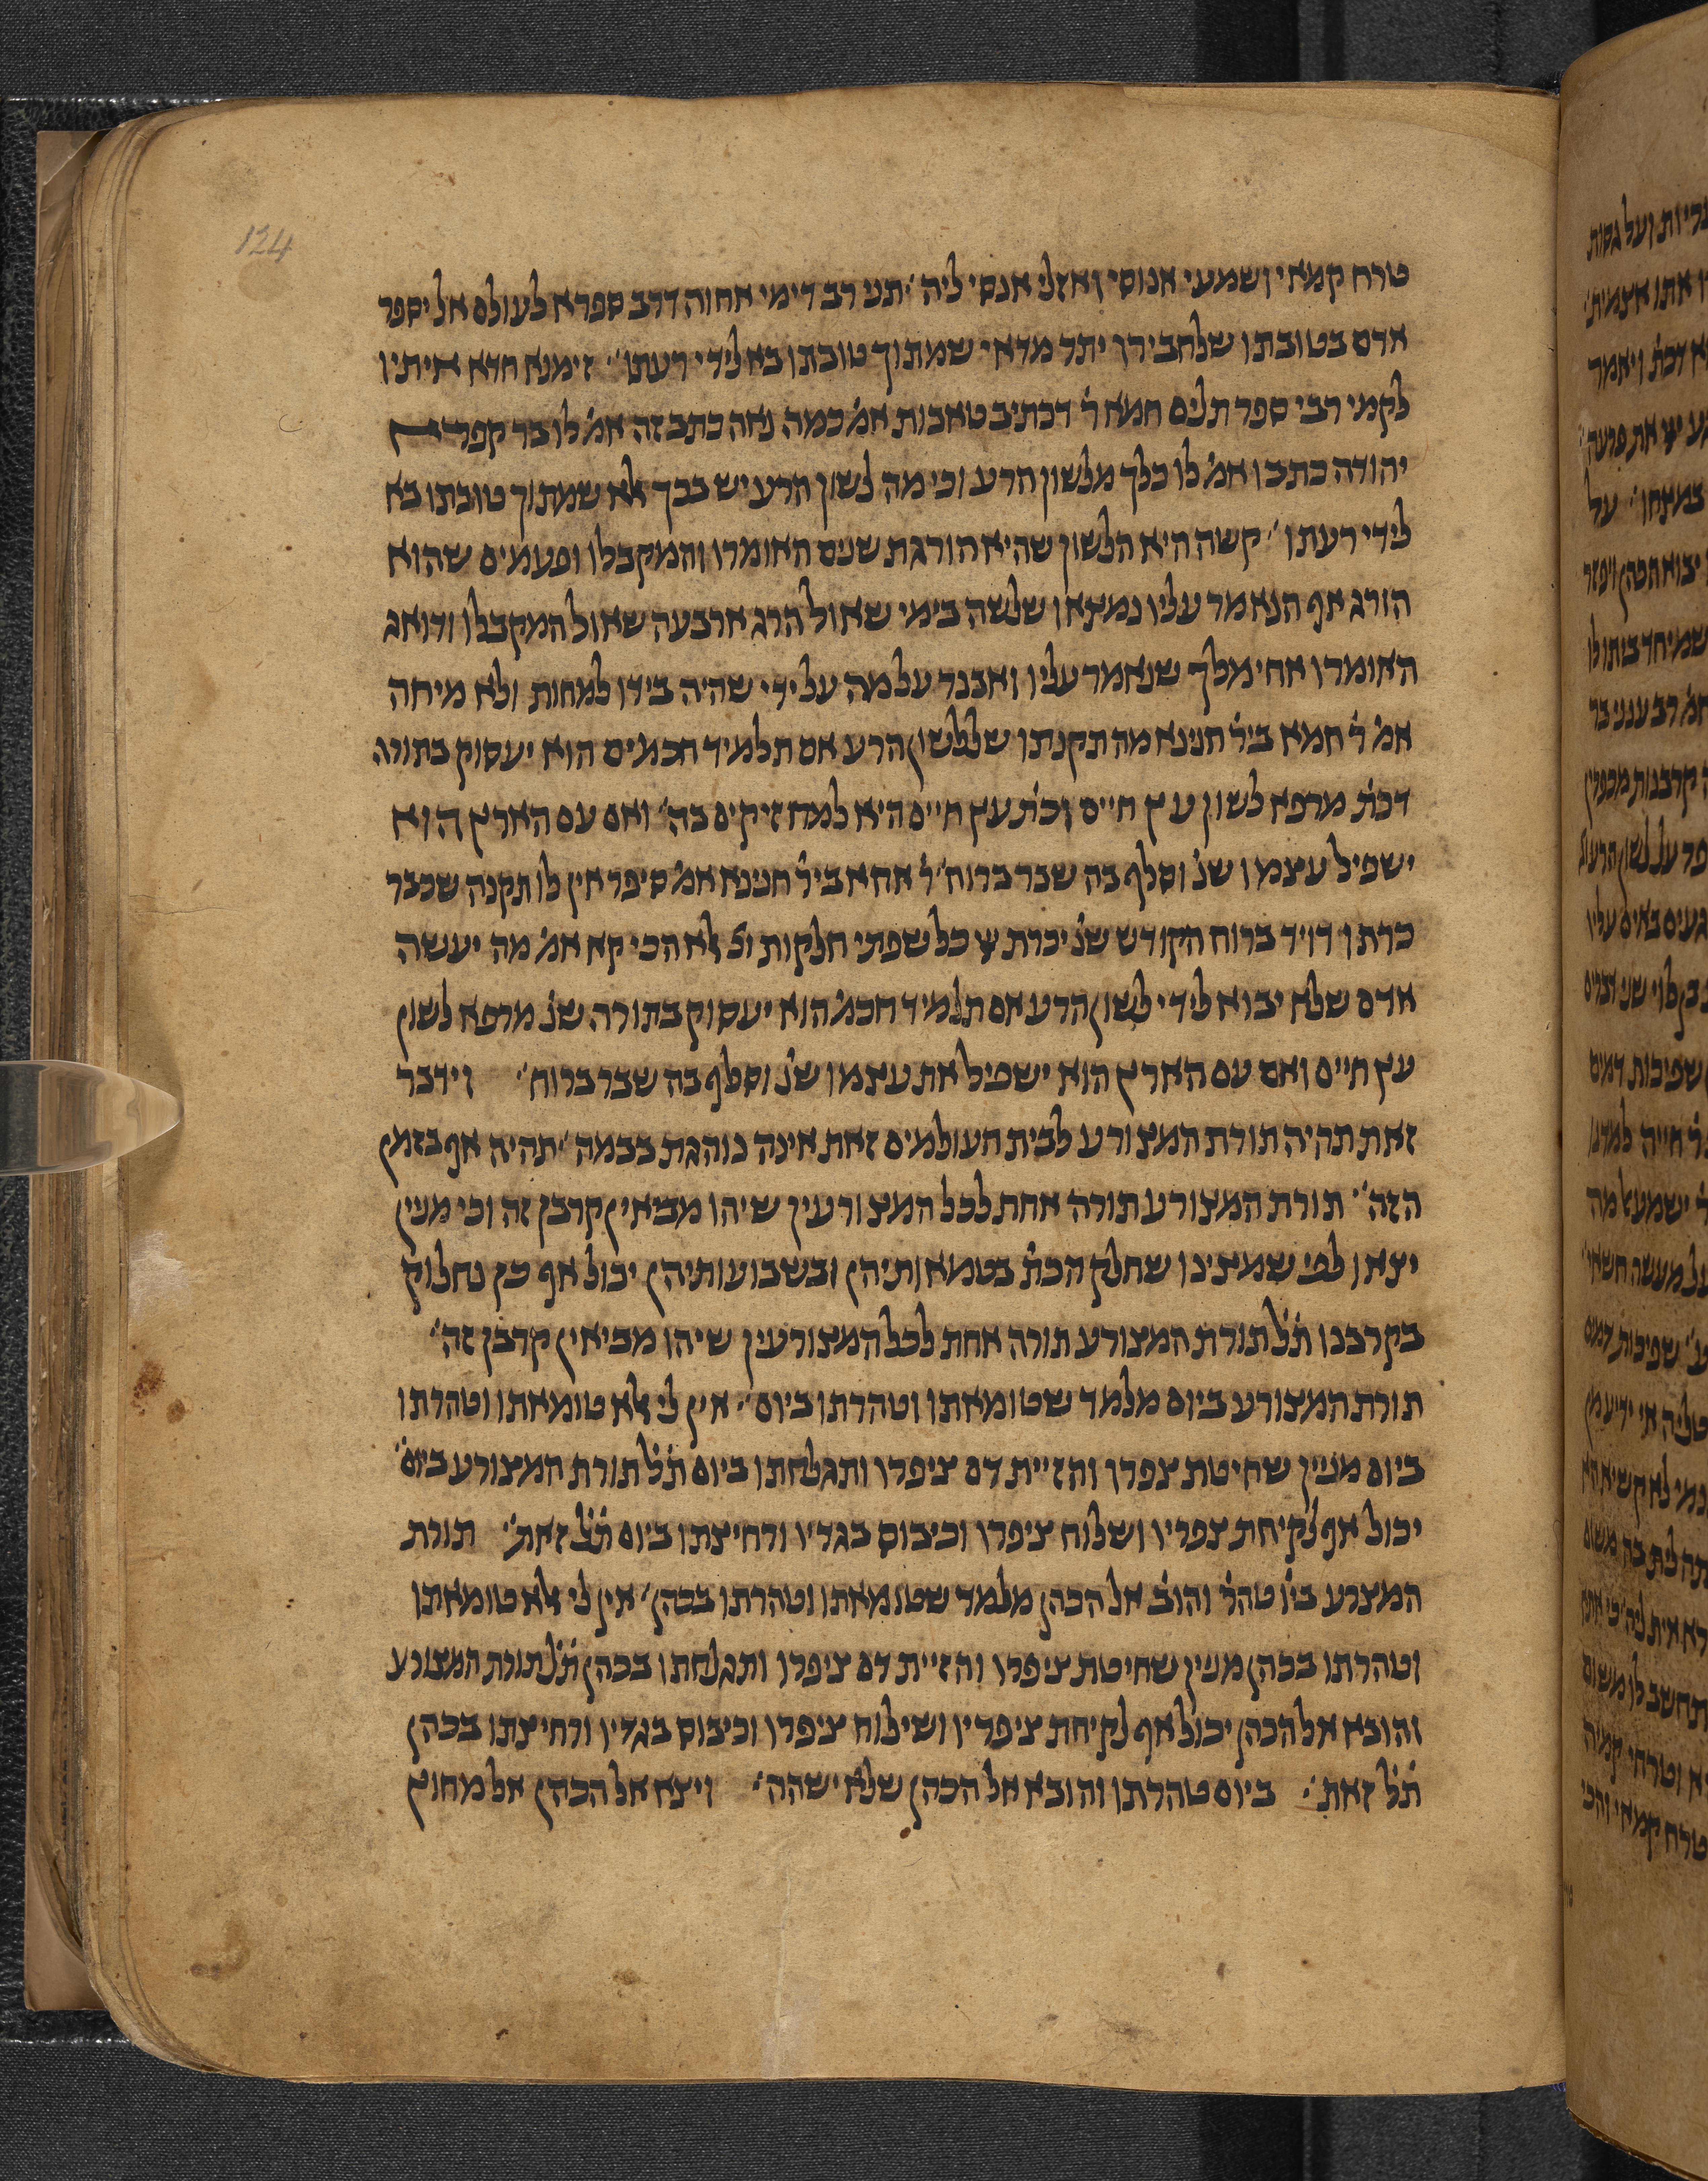 124
טרח קמאי ושמעי אנוסי ואזלי אנסי ליה׳ תני רב דימי אחוה דרב ספרא לעולם אל יספר
אדם בטובתו שלחבירו יתר מדאי שמתוך טובתו בא לידי רעתו׳ זימנא חדא איתיו
לקמי רבי ספר תלים חמא ר׳ דכתיב טאבות אמ׳ כמה נאה כתב זה אמ׳ לו בר קפרא
יהודה כתבו אמ׳ לו כלך מלשון הרע וכי מה לשון הרע יש בכך אלא שמתוך טובתו בא
לידי רעתו׳ קשה היא הלשון שהיא הורגת שנים האומרו והמקבלו ופעמים שהוא
הורג אף הנאמר עליו נמצאו שלשה בימי שאול הרג ארבעה שאול המקבלו ודואג
האומרו אחימלך שנאמר עליו ואבנר על מה על ידי שהיה בידו למחות ולא מיחה
אמ׳ ר׳ חמא ביר׳ חנינא מה תקנתו שללשון הרע אם תלמיד חכמים הוא יעסוק בתורה
דכת׳ מרפא לשון עץ חיים וכת׳ עץ חיים היא למחזיקים בה׳ ואם עם הארץ הוא
ישפיל עצמו שנ׳ וסלף בה שבר ברוח׳ ר׳ אחא ביר׳ חנינא אמ׳ סיפר אין לו תקנה שכבר
כרתו דויד ברוח הקודש שנ׳ יכרת יי כל שפתי חלקות וג׳ אלא הכי קא אמ׳ מה יעשה
אדם שלא יבוא לידי לשון הרע אם תלמיד חכמ׳ הוא יעסוק בתורה שנ׳ מרפא לשון
עץ חיים ואם עם הארץ הוא ישפיל את עצמו שנ׳ וסלף בה שבר ברוח׳ וידבר
זאת תהיה תורת המצורע לבית העולמים זאת אינה נוהגת בבמה׳ תהיה אף בזמן
הזה׳ תורת המצורע תורה אחת לכל המצורעין שיהו מביאין קרבן זה וכי מנין
יצאו לפי שמצינו שחלק הכת׳ בטמאותיהן ובשבועותיהן יכול אף כן נחלוק
בקרבנו ת׳ל׳ תורת המצורע תורה אחת לכל המצורעין שיהו מביאין קרבן זה׳
תורת המצורע ביום מלמד שטומאתו וטהרתו ביום׳ אין לי אלא טומאתו וטהרתו
ביום מניין שחיטת צפרו והזיית דם ציפרו ותגלחתו ביום ת׳ל׳ תורת המצורע ביום׳
יכול אף לקיחת צפריו ושלוח ציפרו וכיבוס בגדיו ורחיצתו ביום ת׳ל׳ זאת׳ תורת
המצרע ביו׳ טהר׳ והוב׳ אל הכהן מלמד שטומאתו וטהרתו בכהן׳ אין לי אלא טומאתו
וטהרתו בכהן מנין שחיטת ציפרו והזיית דם ציפרו ותגלחתו בכהן ת׳ל׳ תורת המצורע
והובא אל הכהן יכול אף לקיחת ציפריו ושילוח ציפרו וכיבוס בגדיו ורחיצתו בכהן
ת׳ל׳ זאת׳ ביום טהרתו והובא אל הכהן שלא ישהה׳ ויצא אל הכהן אל מחוץ